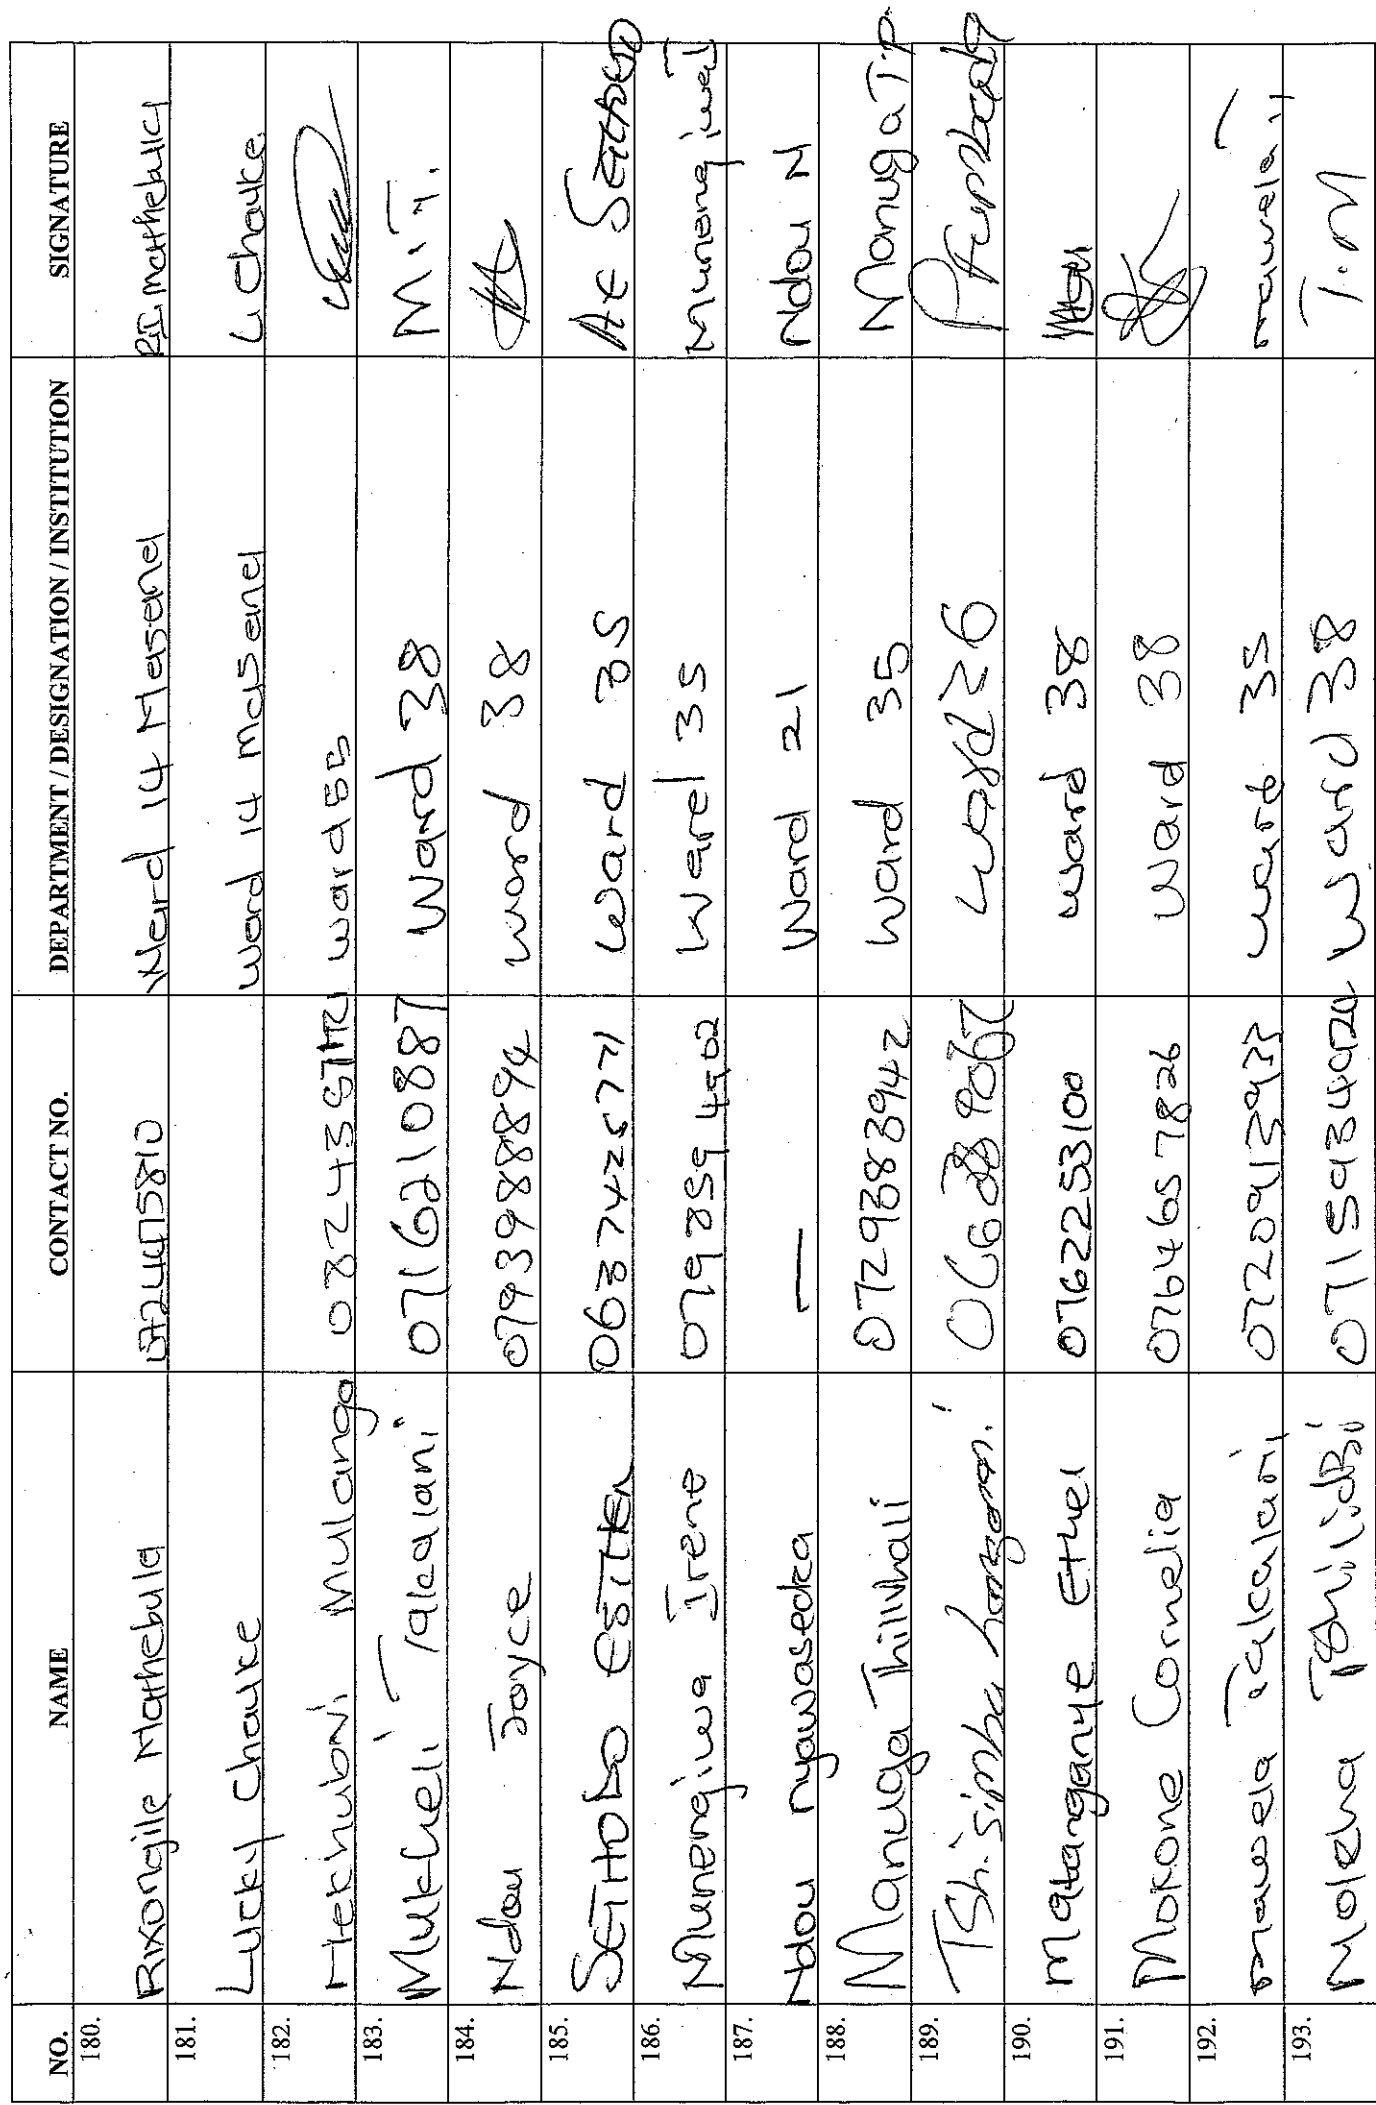 NO. NAME CONTACT NO. DEPARTMENT / DESIGNATION / INSTITUTION SIGNATURE
180. Rixongile Mathebula 0724475810 Ward 14 Masana RI mathebula
181. Lucky Chauke Ward 14 masana L Chauke
182. Hekhubni Mulanga ward 55
183. Mukheli Takalani 0716210887 Ward 38 M.T.
184. Ndou Joyce 0793988894 ward 38
185. SETHOBO ESTHER 0637425771 Ward 35
186. Munengiwa Irene 0798594902 Ward 35
187. Ndou nyawaseka — Ward 21 Ndou N
188. Manuga Thilivhali 0729383942 Ward 35 Manuga T.P
189. Ward 26
190. Matanganye Ethel 0762253100 ward 38
191. Mokone Cornelia 0764657826 Ward 38
192. mawela Takalani 0722091393 ward 35 mawela T
193. Ward 38 T.M